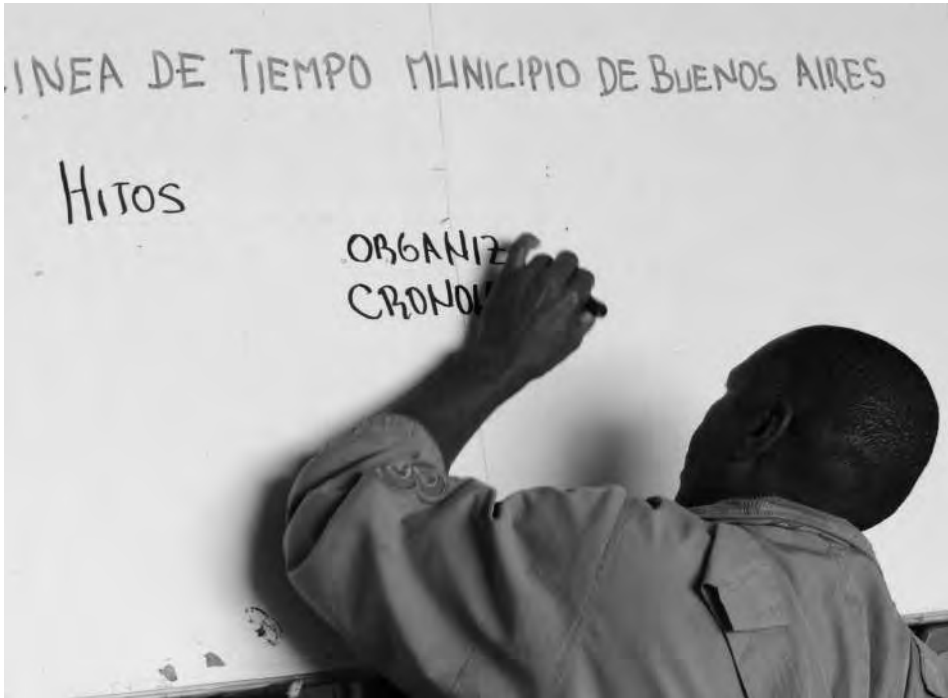 INEA DE TIEMPO MUNICIPIO DE BUENOS AIRES
HITOS
ORGANIZ
CRONO